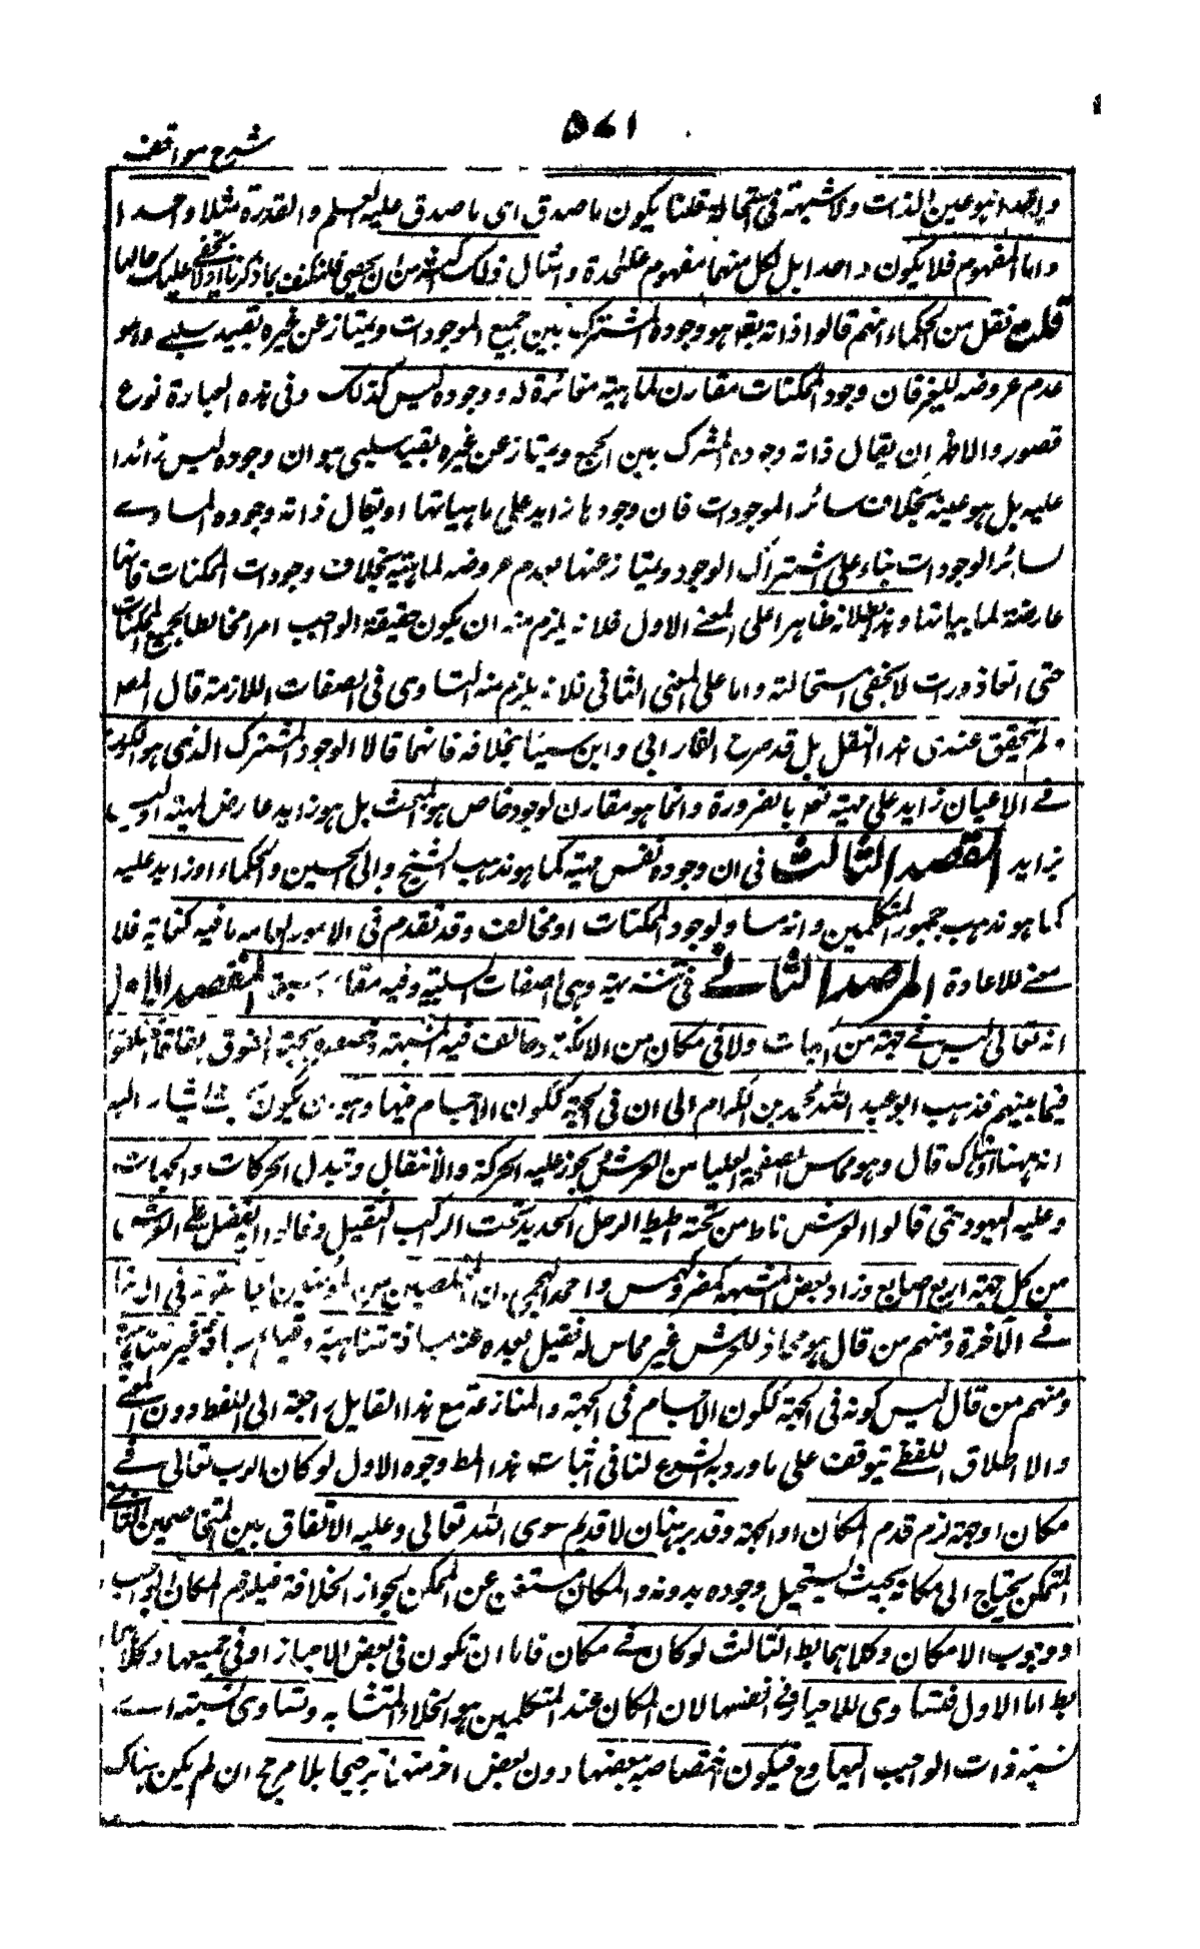 ٥٧١
شرح مواقف
واحدا هو عين الذات ولا شبهة فى استحالته قلنا يكون ما صدق اى ما صدق عليه العلم والقدرة مثلا واحدا
واما المفهوم فلا يكون واحدا بل لكل منهما مفهوم على حدة وامثال ذلك اكثر من ان يحصى فلنكتف بما ذكرنا اذ لا يخفى عليك حالها
نقل من الحكماء انهم قالوا ذاته تعالى هو وجوده المشترك بين جميع الموجودات ويمتاز عن غيره بقيد سلبے وهو
عدم عروضه للغير فان وجود الممكنات مقارن لماهية مغائرة له ووجوده ليس كذلك وفى هذه العبارة نوع
قصور والاظهر ان يقال ذاته وجوده المشترك بين الجميع ويمتاز عن غيره بقيد سلبى هو ان وجوده ليس زائدا
عليه بل هو عينه بخلاف سائر الموجودات فان وجودها زايد على ماهياتها او يقال ذاته وجوده المساوے
لسائر الوجودات بناء على اشتراك الوجود ويمتاز عنها بعدم عروضه لماهية بخلاف وجودات الممكنات فانها
عارضة لماهياتها وهذا بطلانه ظاهر اما على المعنے الاول فلانه يلزم منه ان يكون حقيقة الواجب امرا مخالطا لجميع الممكنات
حتى القاذورات لا يخفى استحالته واما على المعنى الثانى فلانه يلزم منه التساوى فى الصفات اللازمة قال المص
لم يتحقق عندى هذا النقل بل قد صرح الفارابى وابن سينا بخلافه فانهما قالا الوجود المشترك الذى هو الكون
فے الاعيان زايد على مهيته تعا بالضرورة وانما هو مقارن لوجود خاص هو المبحث بل هو زايد عارض لمهيته او ليس
بزايد المقصد الثالث فى ان وجوده نفس مهيته كما هو مذهب الشيخ وابى الحسين والحكماء او زايد عليه
كما هو مذهب جمهور المتكلمين وانه مساو لوجود الممكنات او مخالف وقد تقدم فى الامور العامه ما فيه كفاية فلا
معنے للاعادة المرصد الثانے فى تنزيهه وهى الصفات السلبية وفيه مقاصد سبعة المقصد الاول
انه تعالى ليس فے جهة من الجهات ولا فى مكان من الامكنة وخالف فيه المشبهة وخصصوه بجهة الفوق اتفاقا ثم اختلفوا
فيما بينهم فذهب ابو عبد الله محمد بن الكرام الى ان فى الجهة ككون الاجسام فيها وهو ان يكون بحيث يشار اليه
انه ههنا او هناك قال وهو مماس للصفحة العليا من العرش ويجوز عليه الحركة والانتقال وتبدل الحركات والجهات
وعليه اليهود حتى قالوا العرش ناط من تحته اطيط الرحل الجديد تحت الراكب الثقيل وقالوا انه يفضل على العرش
من كل جهة اربع اصابع وزاد بعض المشبهة كمضر وكهمس واحمد الهجيمى ان المخلصين من المؤمنين يعانقونه فى الدنيا
فے الآخرة ومنهم من قال هو محاذ للعرش غير مماس له فقيل بعده عنه بمسافة متناهية وقيل بمسافة غير متناهية
ومنهم من قال ليس كونه فى الجهة ككون الاجسام فى الجهة والمنازعة مع هذا القايل راجعة الى اللفظ دون المعنے
والاطلاق اللفظے يتوقف على ما ورد به الشرع لنا فى اثبات هذا المط وجوه الاول لو كان الرب تعالى فے
مكان او جهة لزم قدم المكان او الجهة وقد برهنا ان لا قديم سوى الله تعالى وعليه الاتفاق بين المتخاصمين الثانے
المتمكن يحتاج الى مكانه بحيث يستحيل وجوده بدونه والمكان مستغن عن المتمكن لجواز الخلاء فيلزم امكان الواجب
ووجوب الامكان وكلاهما بط الثالث لو كان فے مكان فاما ان تكون فى بعض الاحياز او فى جميعها وكلاهما
بط اما الاول فلتساوى الاحياز فے انفسها لان المكان عند المتكلمين هو الخلاء المتشابه وتساوى نسبته اے
نسبة ذات الواجب اليها وح فيكون اختصاصه ببعضها دون بعض اخر منها ترجيحا بلا مرجح ان لم يكن هناك